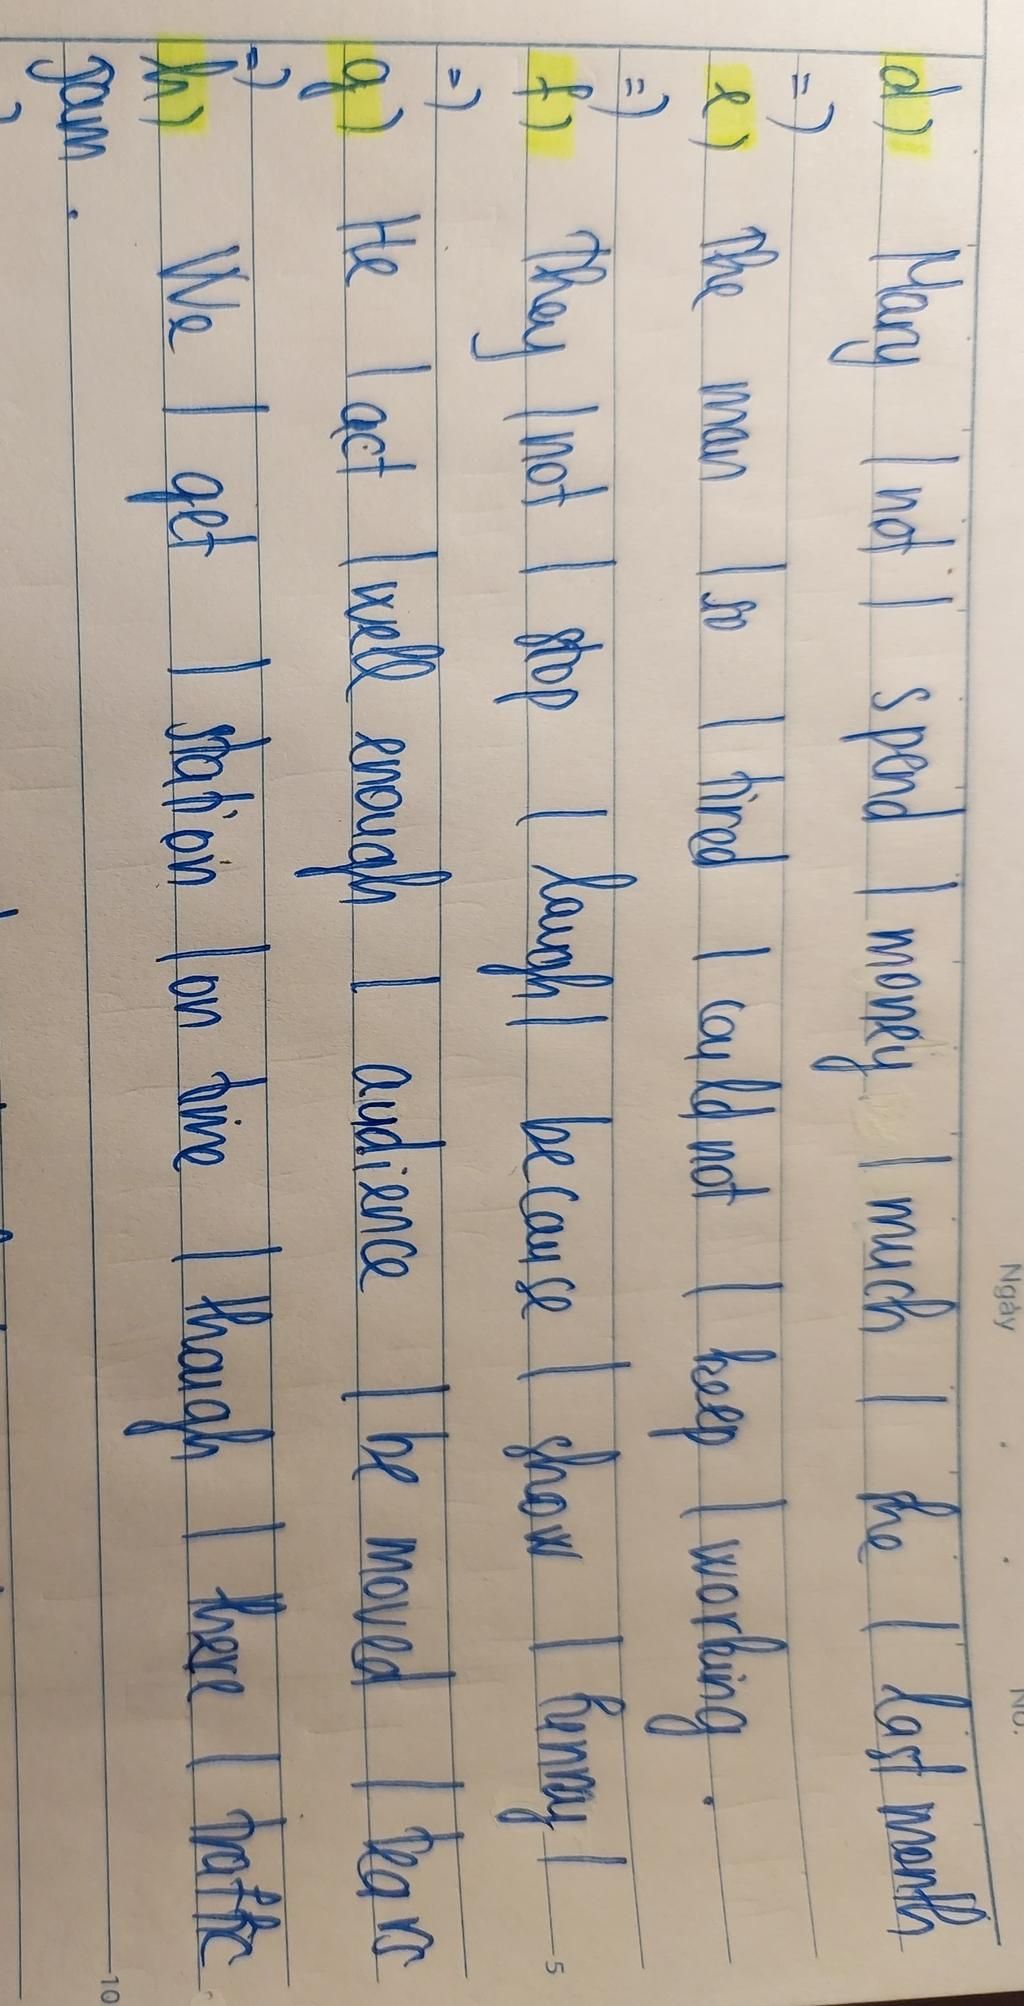 Ngày
No.
d) Mary / not / spend / money / much / the / last month
=)
e) The man / so / tired / could not / keep / working.
=)
f) They / not / stop / laugh / because / show / funny /
=)
5
g) He / act / well enough / audience / be moved / tears
=)
h) We / get / station / on time / though / there / traffic
jam.
10